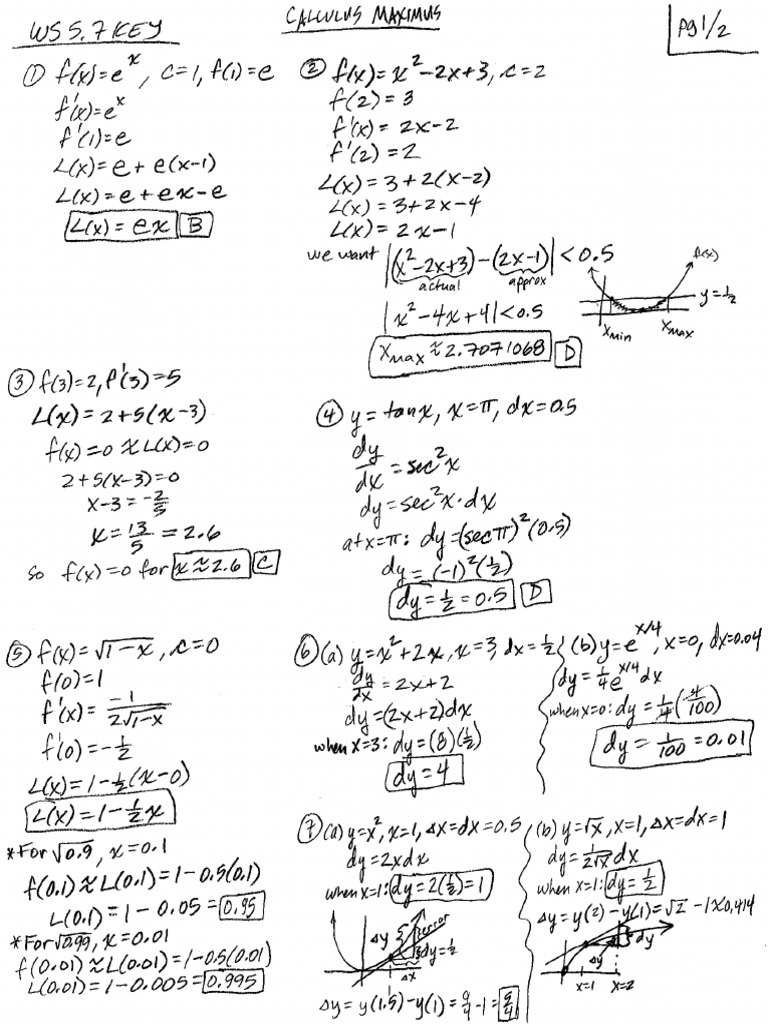 WS 5.7 KEY
CALCULUS MAXIMUS
Pg 1/2
① f(x)=e^x, c=1, f(1)=e
f'(x)=e^x
f'(1)=e
L(x)=e+e(x-1)
L(x)=e+ex-e
L(x)=ex B
② f(x)=x²-2x+3, c=2
f(2)=3
f'(x)=2x-2
f'(2)=2
L(x)=3+2(x-2)
L(x)=3+2x-4
L(x)=2x-1
we want |(x²-2x+3)-(2x-1)|<0.5
actual approx
|x²-4x+4|<0.5
x_max≈2.7071068 D
f(x)
y=1/2
x_min x_max
③ f(3)=2, f'(3)=5
L(x)=2+5(x-3)
f(x)=0≈L(x)=0
2+5(x-3)=0
x-3=-2/5
x=13/5=2.6
so f(x)=0 for x≈2.6 C
④ y=tanx, x=π, dx=0.5
dy/dx=sec²x
dy=sec²x·dx
at x=π: dy=(secπ)²(0.5)
dy=(-1)²(1/2)
dy=1/2=0.5 D
⑤ f(x)=√(1-x), c=0
f(0)=1
f'(x)=-1/(2√(1-x))
f'(0)=-1/2
L(x)=1-1/2(x-0)
L(x)=1-1/2x
*For √0.9, x=0.1
f(0.1)≈L(0.1)=1-0.5(0.1)
L(0.1)=1-0.05=0.95
*For √0.99, x=0.01
f(0.01)≈L(0.01)=1-0.5(0.01)
L(0.01)=1-0.005=0.995
⑥ (a) y=x²+2x, x=3, dx=1/2
dy/dx=2x+2
dy=(2x+2)dx
when x=3: dy=(8)(1/2)
dy=4
(b) y=e^(x/4), x=0, dx=0.04
dy=1/4e^(x/4)dx
when x=0: dy=1/4(4/100)
dy=1/100=0.01
⑦ (a) y=x², x=1, Δx=dx=0.5
dy=2xdx
when x=1: dy=2(1/2)=1
Δy
error
dy=1/2
Δx
Δy=y(1.5)-y(1)=9/4-1=5/4
(b) y=√x, x=1, Δx=dx=1
dy=1/(2√x)dx
when x=1: dy=1/2
Δy=y(2)-y(1)=√2-1≈0.414
dy
Δy
x=1 x=2